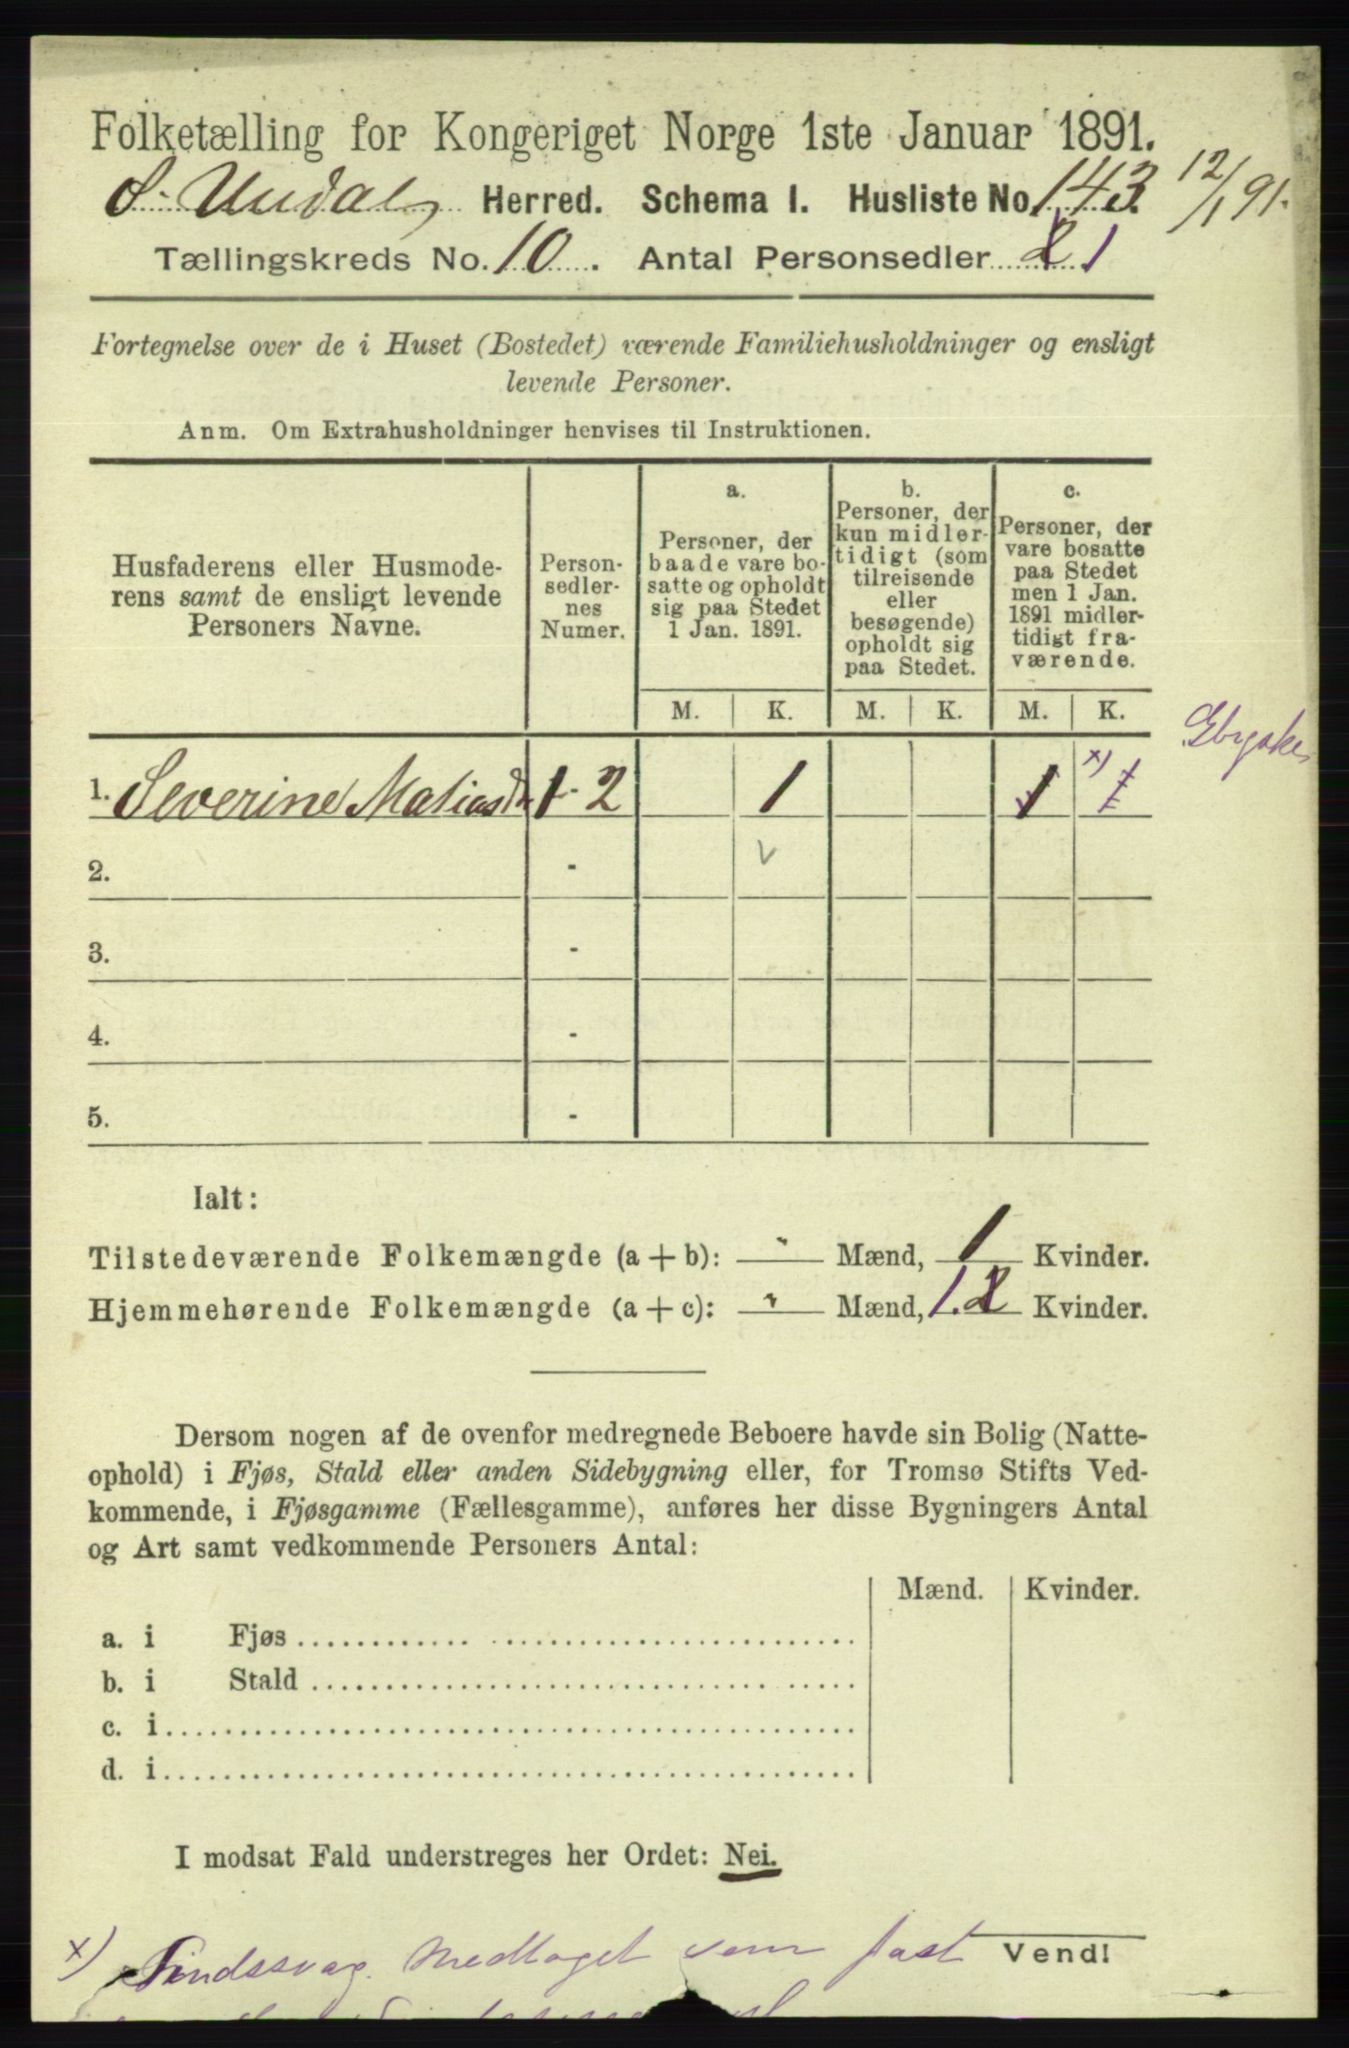 Folketælling for Kongeriget Norge 1ste Januar 1891.
S. Undals Herred. Schema I. Husliste No. 143. 12/1 91.
Tællingskreds No. 10. Antal Personsedler 2 1
Fortegnelse over de i Huset (Bostedet) værende Familiehusholdninger og ensligt
levende Personer.
Anm. Om Extrahusholdninger henvises til Instruktionen.
Husfaderens eller Husmode-
rens samt de ensligt levende
Personers Navne.
Person-
sedler-
nes
Numer.
a.
Personer, der
baade vare bo-
satte og opholdt
sig paa Stedet
1 Jan. 1891.
b.
Personer, der
kun midler-
tidigt (som
tilreisende
eller
besøgende)
opholdt sig
paa Stedet.
c.
Personer, der
vare bosatte
paa Stedet
men 1 Jan.
1891 midler-
tidigt fra-
værende.
M. K. M. K. M. K.
1. Severine Matiasd. 1 - 2 1 1 x) 1
2. -
3. -
4. -
5. -
Ialt:
Tilstedeværende Folkemængde (a + b): - Mænd, 1 Kvinder.
Hjemmehørende Folkemængde (a + c): - Mænd, 1. 2 Kvinder.
Dersom nogen af de ovenfor medregnede Beboere havde sin Bolig (Natte-
ophold) i Fjøs, Stald eller anden Sidebygning eller, for Tromsø Stifts Ved-
kommende, i Fjøsgamme (Fællesgamme), anføres her disse Bygningers Antal
og Art samt vedkommende Personers Antal:
Mænd. Kvinder.
a. i Fjøs
b. i Stald
c. i
d. i
I modsat Fald understreges her Ordet: Nei.
x) Sindssvag. Medtaget som fast
Vend!